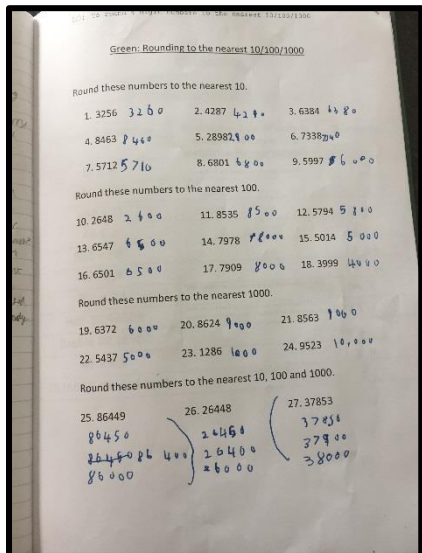 LO1: To round a 4 digit number to the nearest 10/100/1000
Green: Rounding to the nearest 10/100/1000
Round these numbers to the nearest 10.
1. 3256 3260 2. 4287 4290 3. 6384 6380
4. 8463 8460 5. 2898 2900 6. 7338 7340
7. 5712 5710 8. 6801 6800 9. 5997 6000
Round these numbers to the nearest 100.
10. 2648 2600 11. 8535 8500 12. 5794 5800
13. 6547 6500 14. 7978 8000 15. 5014 5000
16. 6501 6500 17. 7909 8000 18. 3999 4000
Round these numbers to the nearest 1000.
19. 6372 6000 20. 8624 9000 21. 8563 9000
22. 5437 5000 23. 1286 1000 24. 9523 10,000
Round these numbers to the nearest 10, 100 and 1000.
25. 86449 26. 26448 27. 37853
86450 26450 37850
86400 26400 37900
86000 26000 38000